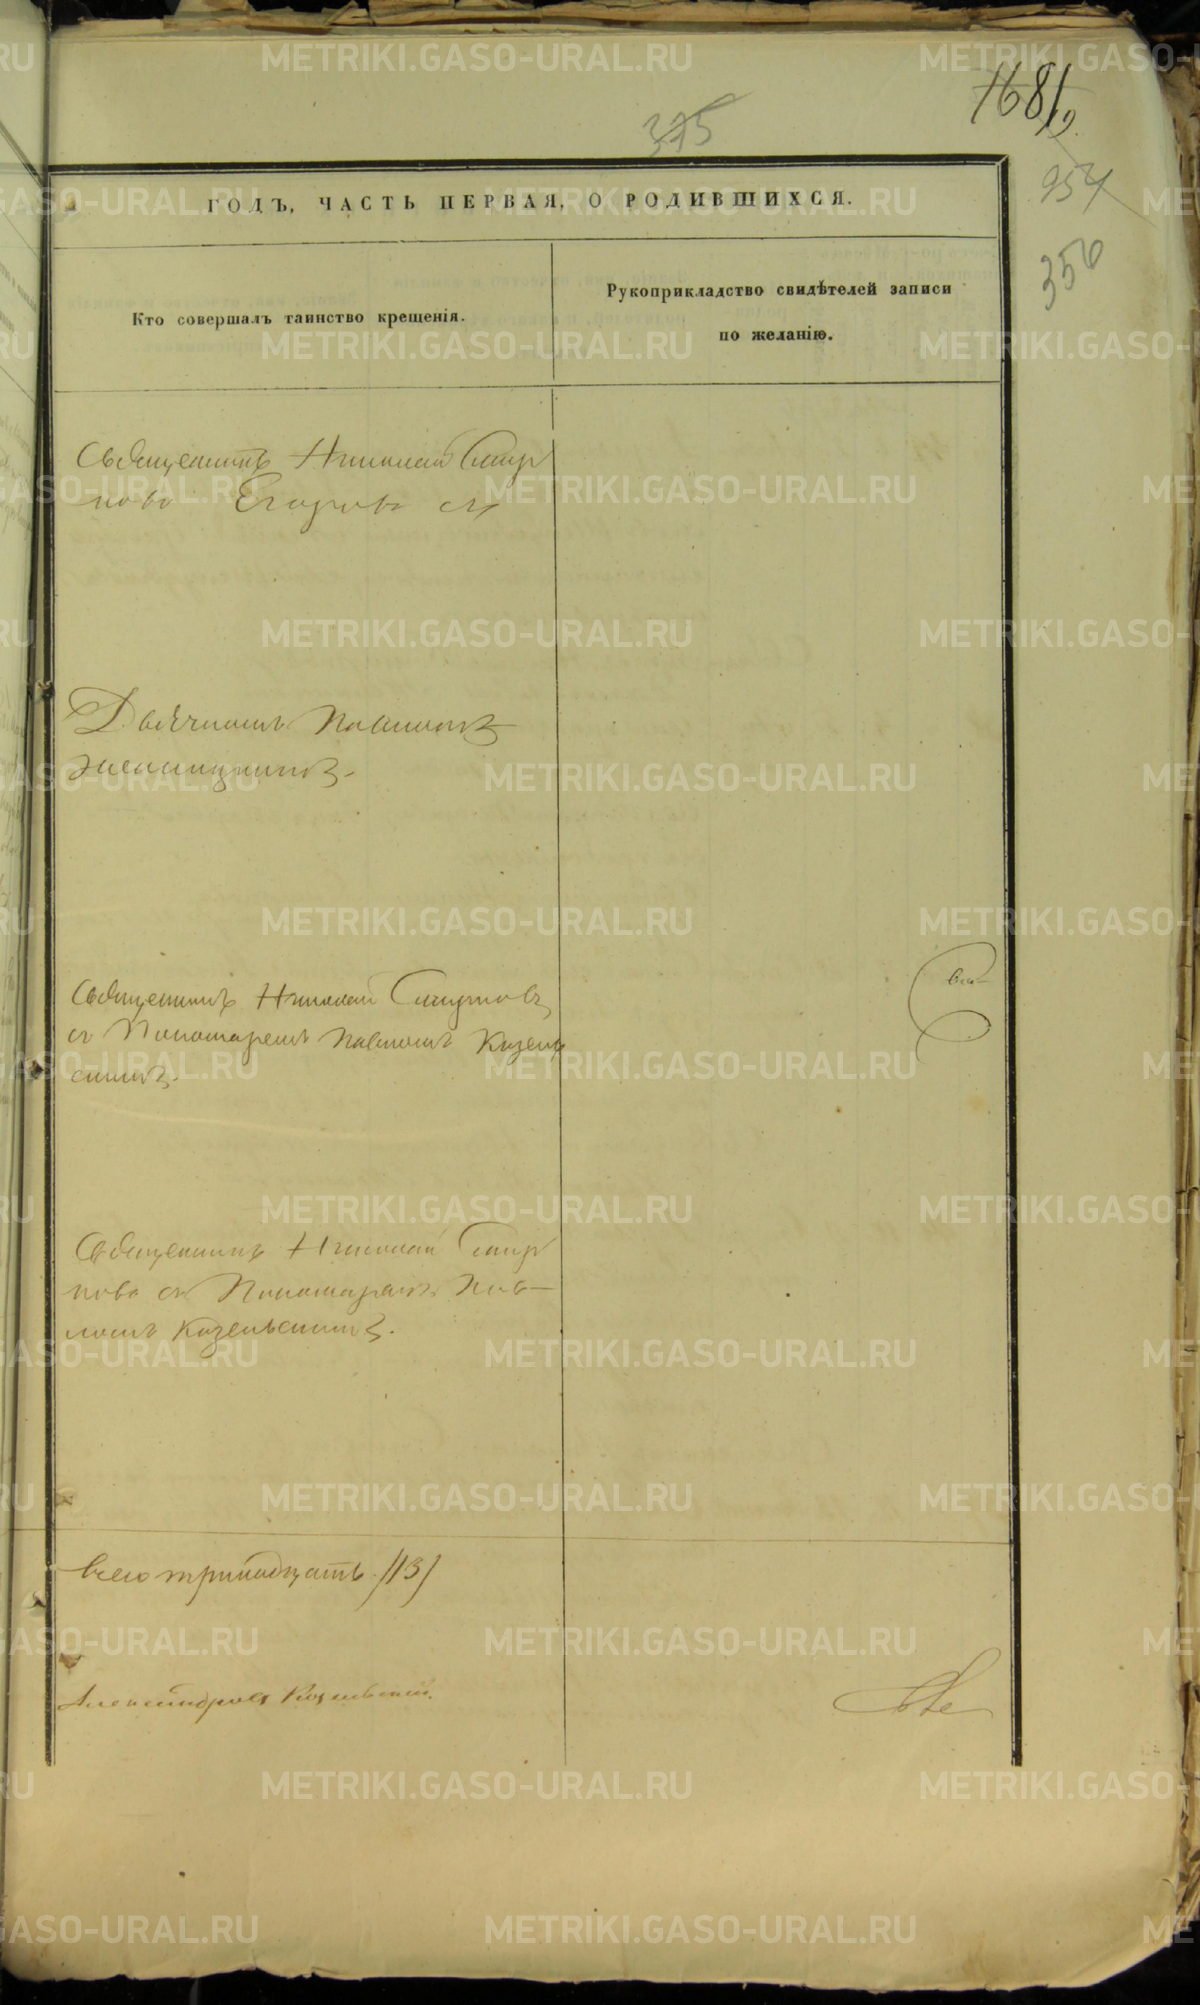 375
1681
954
356
ГОДЪ, ЧАСТЬ ПЕРВАЯ, О РОДИВШИХСЯ.
Кто совершалъ таинство крещенія.
Рукоприкладство свидѣтелей записи
по желанію.
Священникъ Николай Смир
новъ Егорова съ
Дьячкомъ Павломъ
Священникъ Николай Смирновъ
съ Пономаремъ Павломъ Козель
скимъ.
Священникъ Николай Смир
новъ съ Пономаремъ Пав-
ломъ Козельскимъ.
Всего тринадцать /13/
Александровъ Козельскій.
METRIKI.GASO-URAL.RU